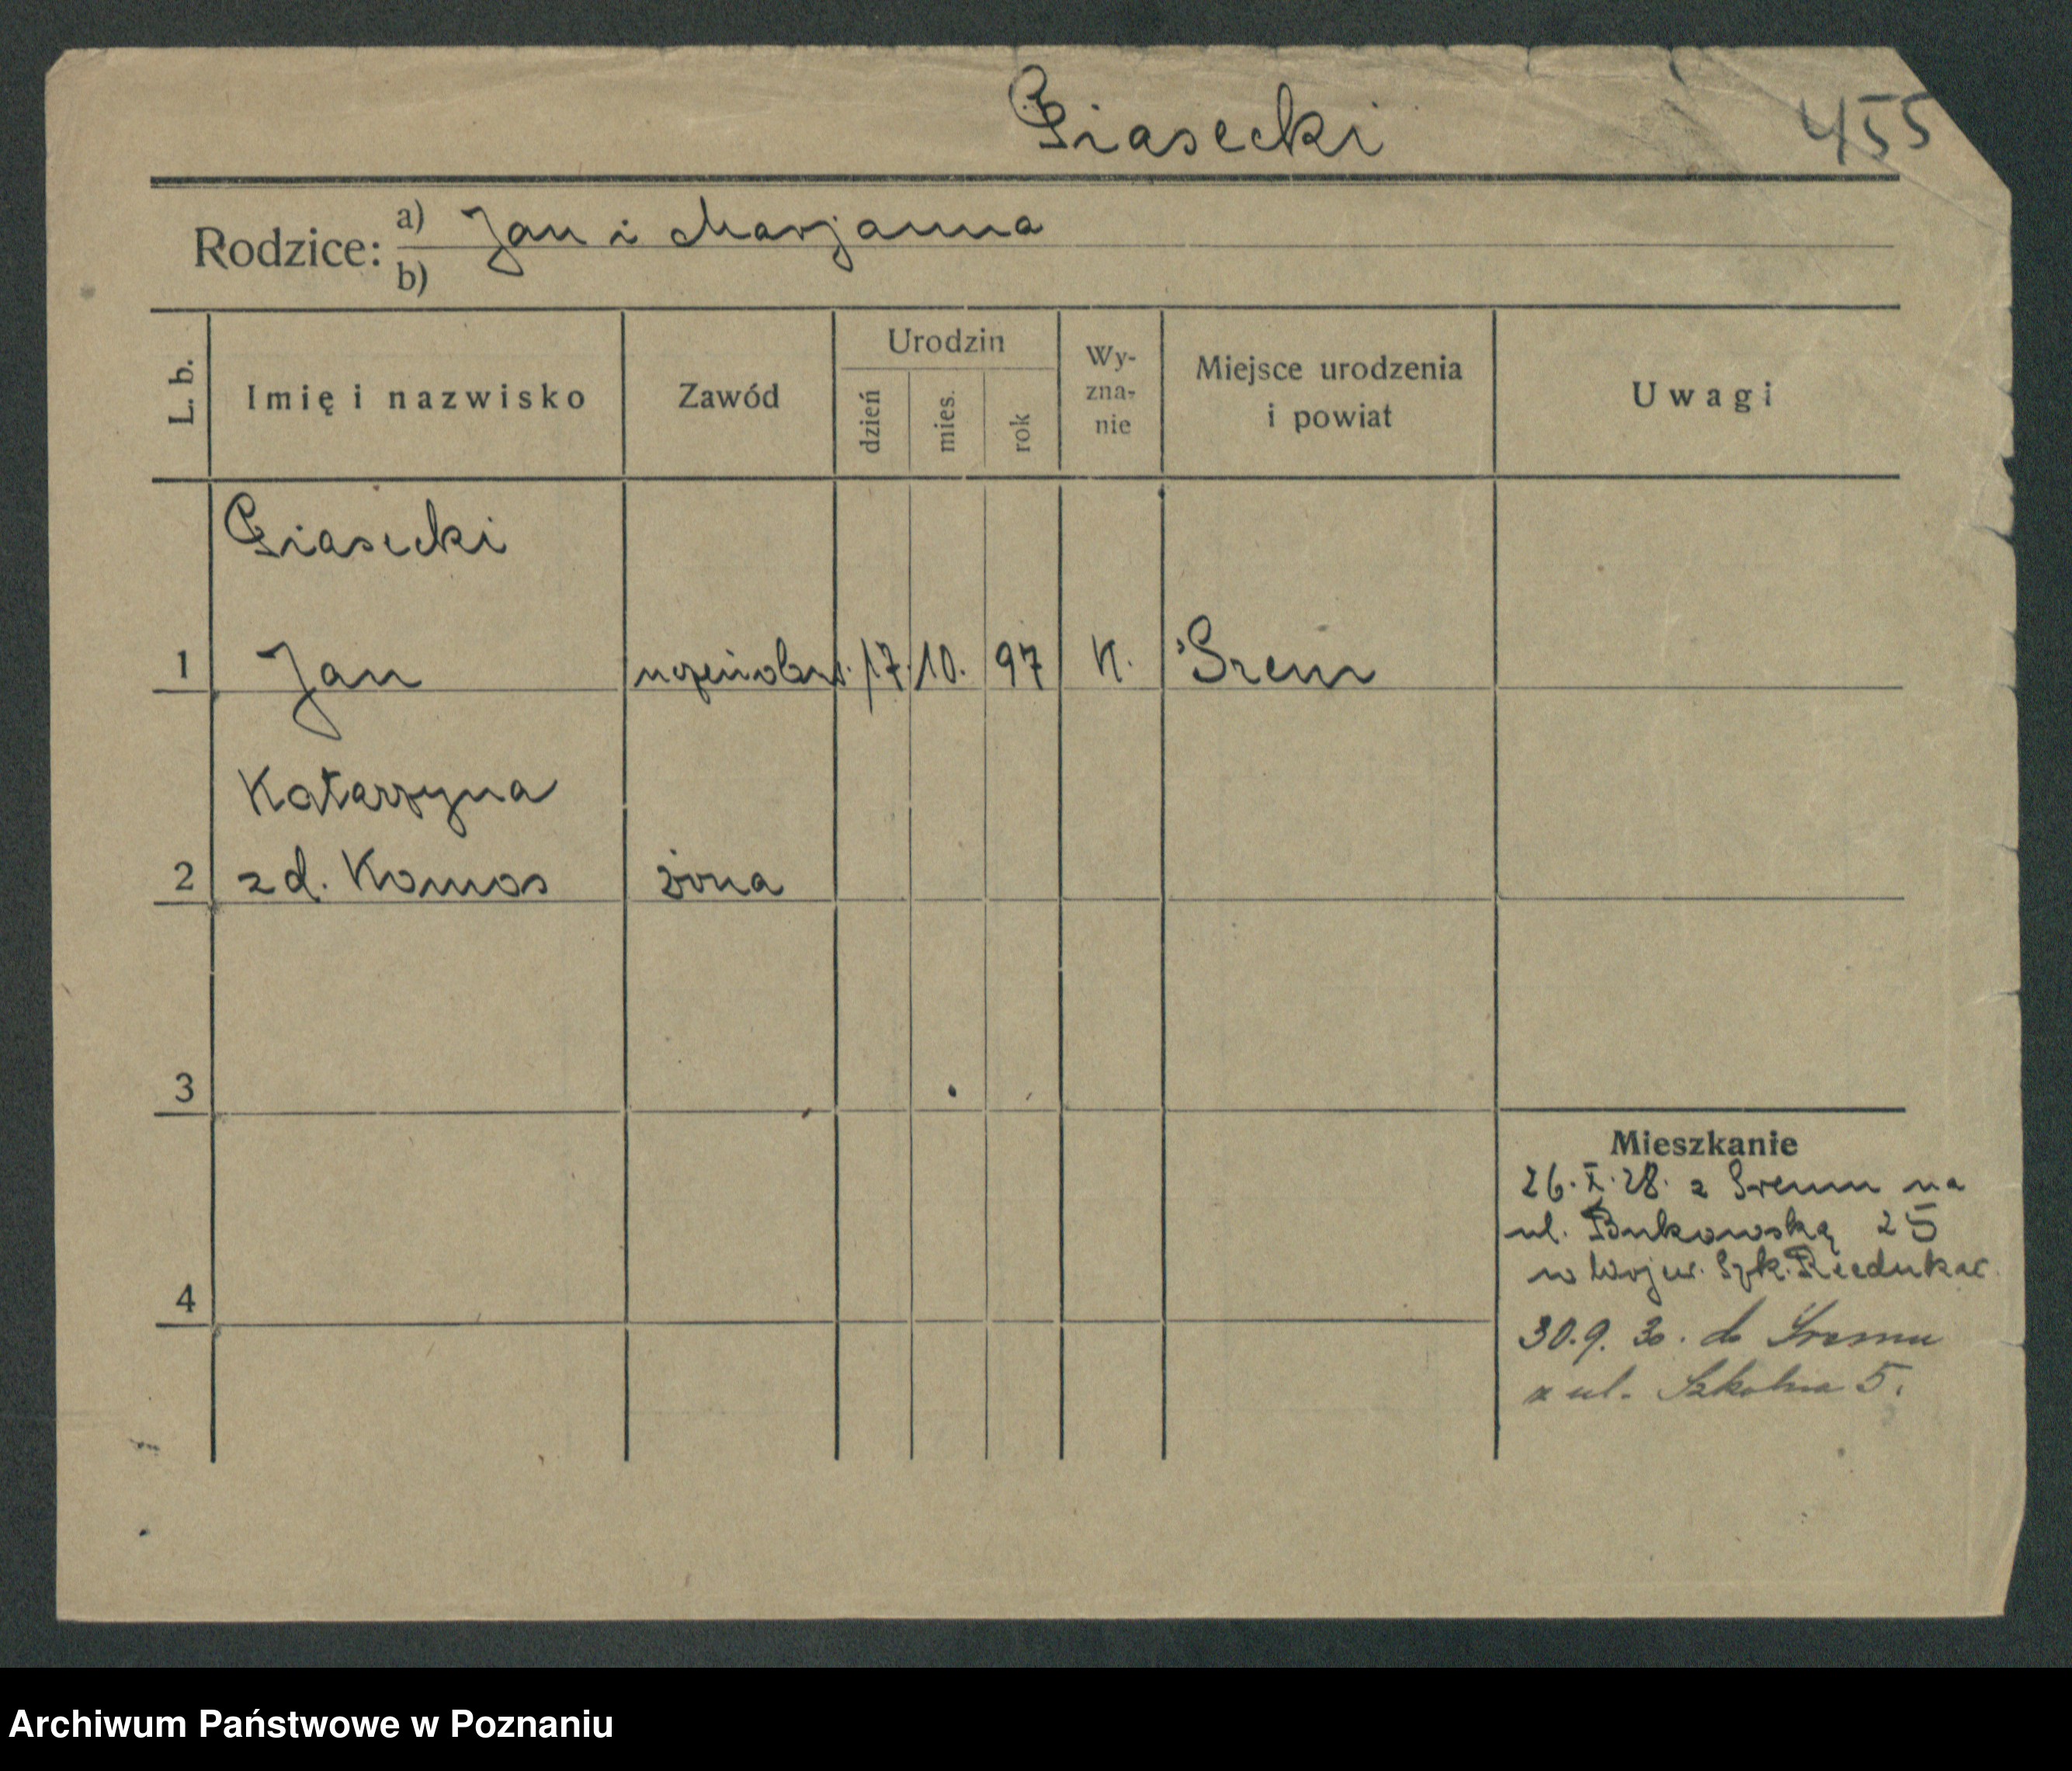 Piasecki 455
Rodzice: a) Jan i Marjanna
b)
L. b.
Imię i nazwisko
Zawód
Urodzin
dzień
mies.
rok
Wy-
zna-
nie
Miejsce urodzenia
i powiat
Uwagi
Piasecki
1 Jan 17. 10. 97 K. Śrem
Katarzyna
2 zd. Komos żona
3
4
Mieszkanie
26.X.28. z Śremu na
ul. Bukowską 25
w Wojew. Szk. Reedukac.
30.9. 30. do Śremu
z ul. Szkolna 5.
Archiwum Państwowe w Poznaniu